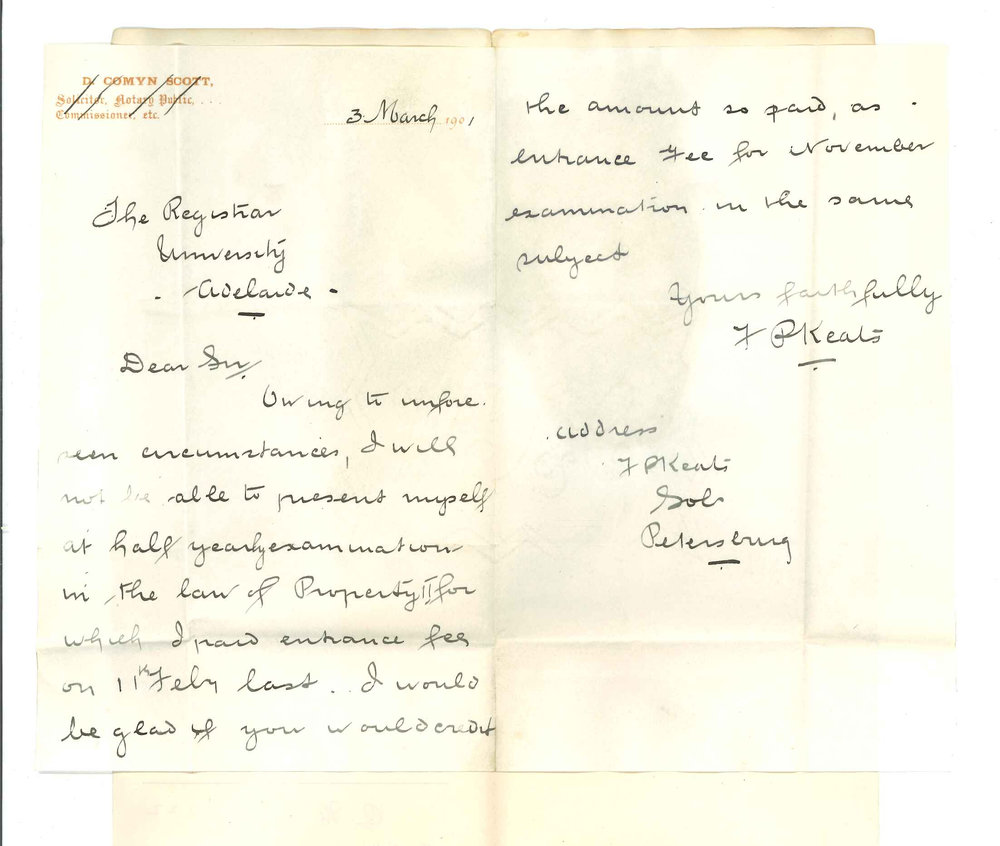 D. COMYN SCOTT,
Solicitor, Notary Public, . . .
Commissioner, etc.
3 March 1901
The Registrar
University
- Adelaide -
Dear Sir
Owing to unfore-
seen circumstances, I will
not be able to present myself
at half yearly examination
in the law of Property II for
which I paid entrance fee
on 11th Feby last. I would
be glad if you would credit
the amount so paid, as
entrance Fee for November
examination in the same
subject
Yours faithfully
F P Keats
Address
F P Keats
Solr
Petersburg